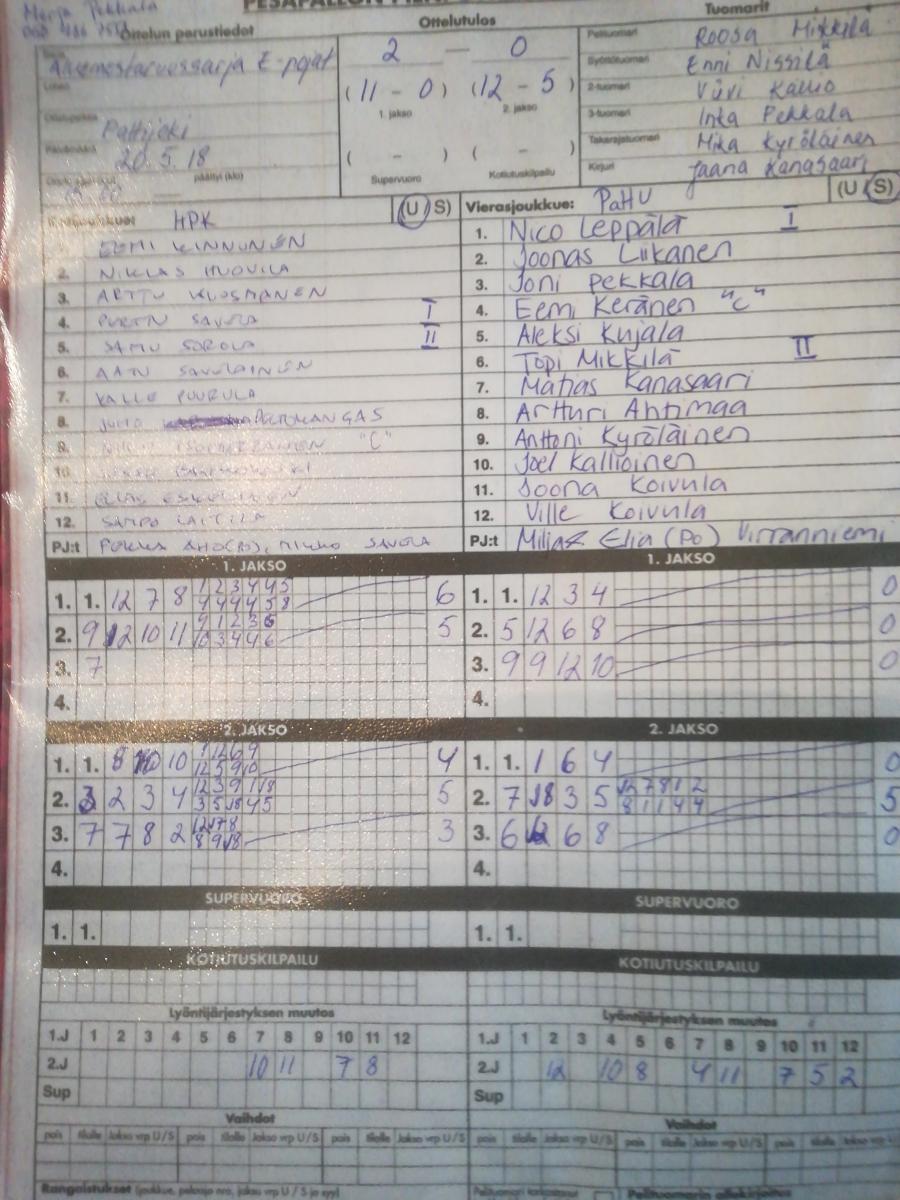 Merja Pekkala
Ottelun perustiedot
Ottelutulos
Tuomarit
E-pojat
Pattijoki
20.5.18
päättyi (klo)
2 – 0
(11 – 0) (12 – 5)
1. jakso 2. jakso
( – ) ( – )
Supervuoro Kotiutuskilpailu
Pelituomari Roosa Mikkilä
Syöttötuomari Enni Nissilä
2-tuomari Viivi Kallio
3-tuomari Inka Pekkala
Takarajatuomari Mika Kyröläinen
Kirjuri Jaana Kanasaari
HPK (U S)
EEMI KINNUNEN
2. NIKLAS HUOVILA
3. ARTTU KUOSMANEN
4. SAVOLA I
5. SAMU SOROLA II
6. AATU SAVOLAINEN
7. KALLE PUURULA
8. JUHO
9. "C"
10.
11.
12. SAMPO LAITILA
PJ:t PEKKA AHO(PO), MIKKO SAVOLA
Vierasjoukkue: PattU (U S)
1. Nico Leppälä I
2. Joonas Liikanen
3. Joni Pekkala
4. Eemi Keränen "C"
5. Aleksi Kujala
6. Topi Mikkilä II
7. Matias Kanasaari
8. Artturi Ahtimaa
9. Anttoni Kyröläinen
10. Joel Kallioinen
11. Joona Koivula
12. Ville Koivula
PJ:t Elia (Po) Virranniemi
1. JAKSO
1. 1. 12 7 8 1 2 3 4 4 5 6
4 4 4 4 5 8
2. 9 12 10 11 9 1 2 3 6 5
10 3 4 4 6
3. 7
4.
1. JAKSO
1. 1. 12 3 4 0
2. 5 12 6 8 0
3. 9 9 12 10 0
4.
2. JAKSO
1. 1. 8 10 10 1 12 6 9 4
12 5 9 10
2. 3 2 3 4 5
3. 7 7 8 2 3
4.
2. JAKSO
1. 1. 1 6 4 0
2. 7 3 5 12 7 8 1 2 5
8 1 1 4 4
3. 6 12 6 8 0
4.
SUPERVUORO
1. 1.
SUPERVUORO
1. 1.
KOTIUTUSKILPAILU
KOTIUTUSKILPAILU
Lyöntijärjestyksen muutos
1.J 1 2 3 4 5 6 7 8 9 10 11 12
2.J 10 11 7 8
Sup
Lyöntijärjestyksen muutos
1.J 1 2 3 4 5 6 7 8 9 10 11 12
2.J 12 10 8 4 11 7 5 2
Sup
Vaihdot
pois tilalle Jakso vrp U/S pois tilalle Jakso vrp U/S pois tilalle Jakso vrp U/S
Vaihdot
pois tilalle Jakso vrp U/S pois tilalle Jakso vrp U/S pois tilalle Jakso vrp U/S
Rangaistukset (joukkue, pelaaja nro, jakso vrp U / S ja syy)